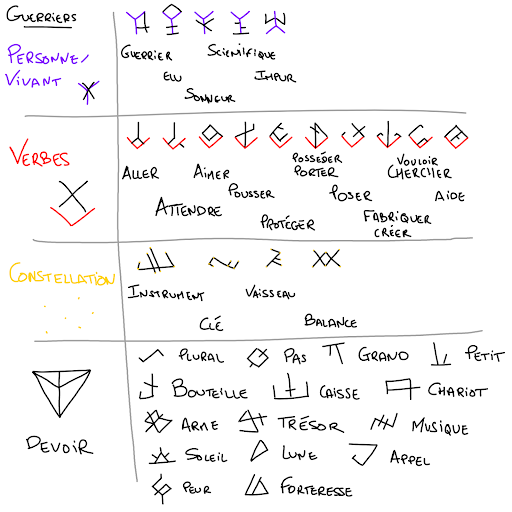 Guerriers
Personne/
Vivant
Guerrier Scientifique
Elu Impur
Sonneur
Verbes
Aller Aimer Posséder
Porter Vouloir
Chercher
Pousser Poser Aide
Attendre Protéger Fabriquer
Créer
Constellation
Instrument Vaisseau
Clé Balance
Devoir
Plural Pas Grand Petit
Bouteille Caisse Chariot
Arme Trésor Musique
Soleil Lune Appel
Peur Forteresse